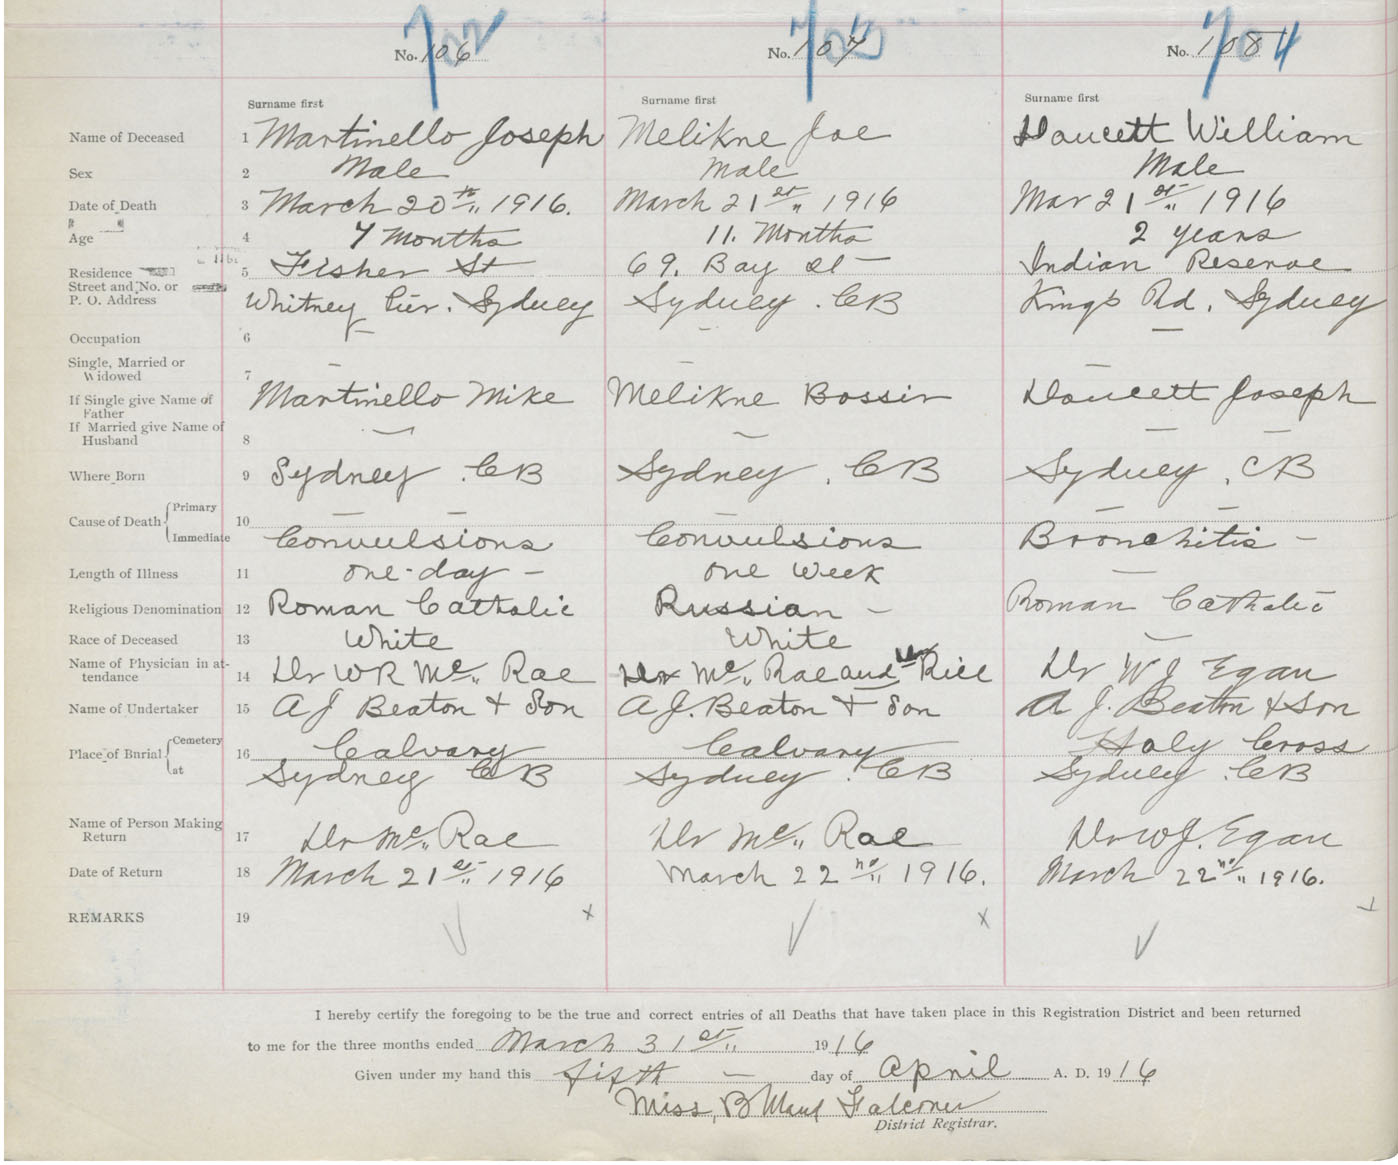 702 703 704
No. 106 No. 107 No. 108
Surname first Surname first Surname first
Name of Deceased 1 Martinello Joseph Melikne Joe Doucett William
Sex 2 Male Male Male
Date of Death 3 March 20th 1916. March 21st 1916 Mar 21st 1916
Age 4 7 Months 11. Months 2 years
Residence 5 Fisher St 69. Bay St Indian Reserve
Street and No. or
P. O. Address Whitney Pier. Sydney Sydney. CB Kings Rd. Sydney
Occupation 6 – – –
Single, Married or
Widowed 7 – – –
If Single give Name of
Father Martinello Mike Melikne Bossin Doucett Joseph
If Married give Name of
Husband 8 – – – –
Where Born 9 Sydney. CB Sydney. CB Sydney. CB
Cause of Death Primary 10 – – – – – –
Immediate Convulsions Convulsions Bronchitis –
Length of Illness 11 one-day – one week –
Religious Denomination 12 Roman Catholic Russian – Roman Catholic
Race of Deceased 13 White White –
Name of Physician in at-
tendance 14 Dr W R Mc Rae Dr Mc Rae and Rice Dr W J Egan
Name of Undertaker 15 A J Beaton + Son A J. Beaton + Son A J. Beaton & Son
Place of Burial Cemetery 16 Calvary Calvary Holy Cross
at Sydney CB Sydney. CB Sydney. CB
Name of Person Making
Return 17 Dr Mc Rae Dr Mc Rae Dr W J. Egan
Date of Return 18 March 21st 1916 March 22nd 1916. March 22nd 1916.
REMARKS 19
I hereby certify the foregoing to be the true and correct entries of all Deaths that have taken place in this Registration District and been returned
to me for the three months ended March 31st 1916
Given under my hand this fifth – day of April A. D. 1916
Miss, B Maud Falconer
District Registrar.